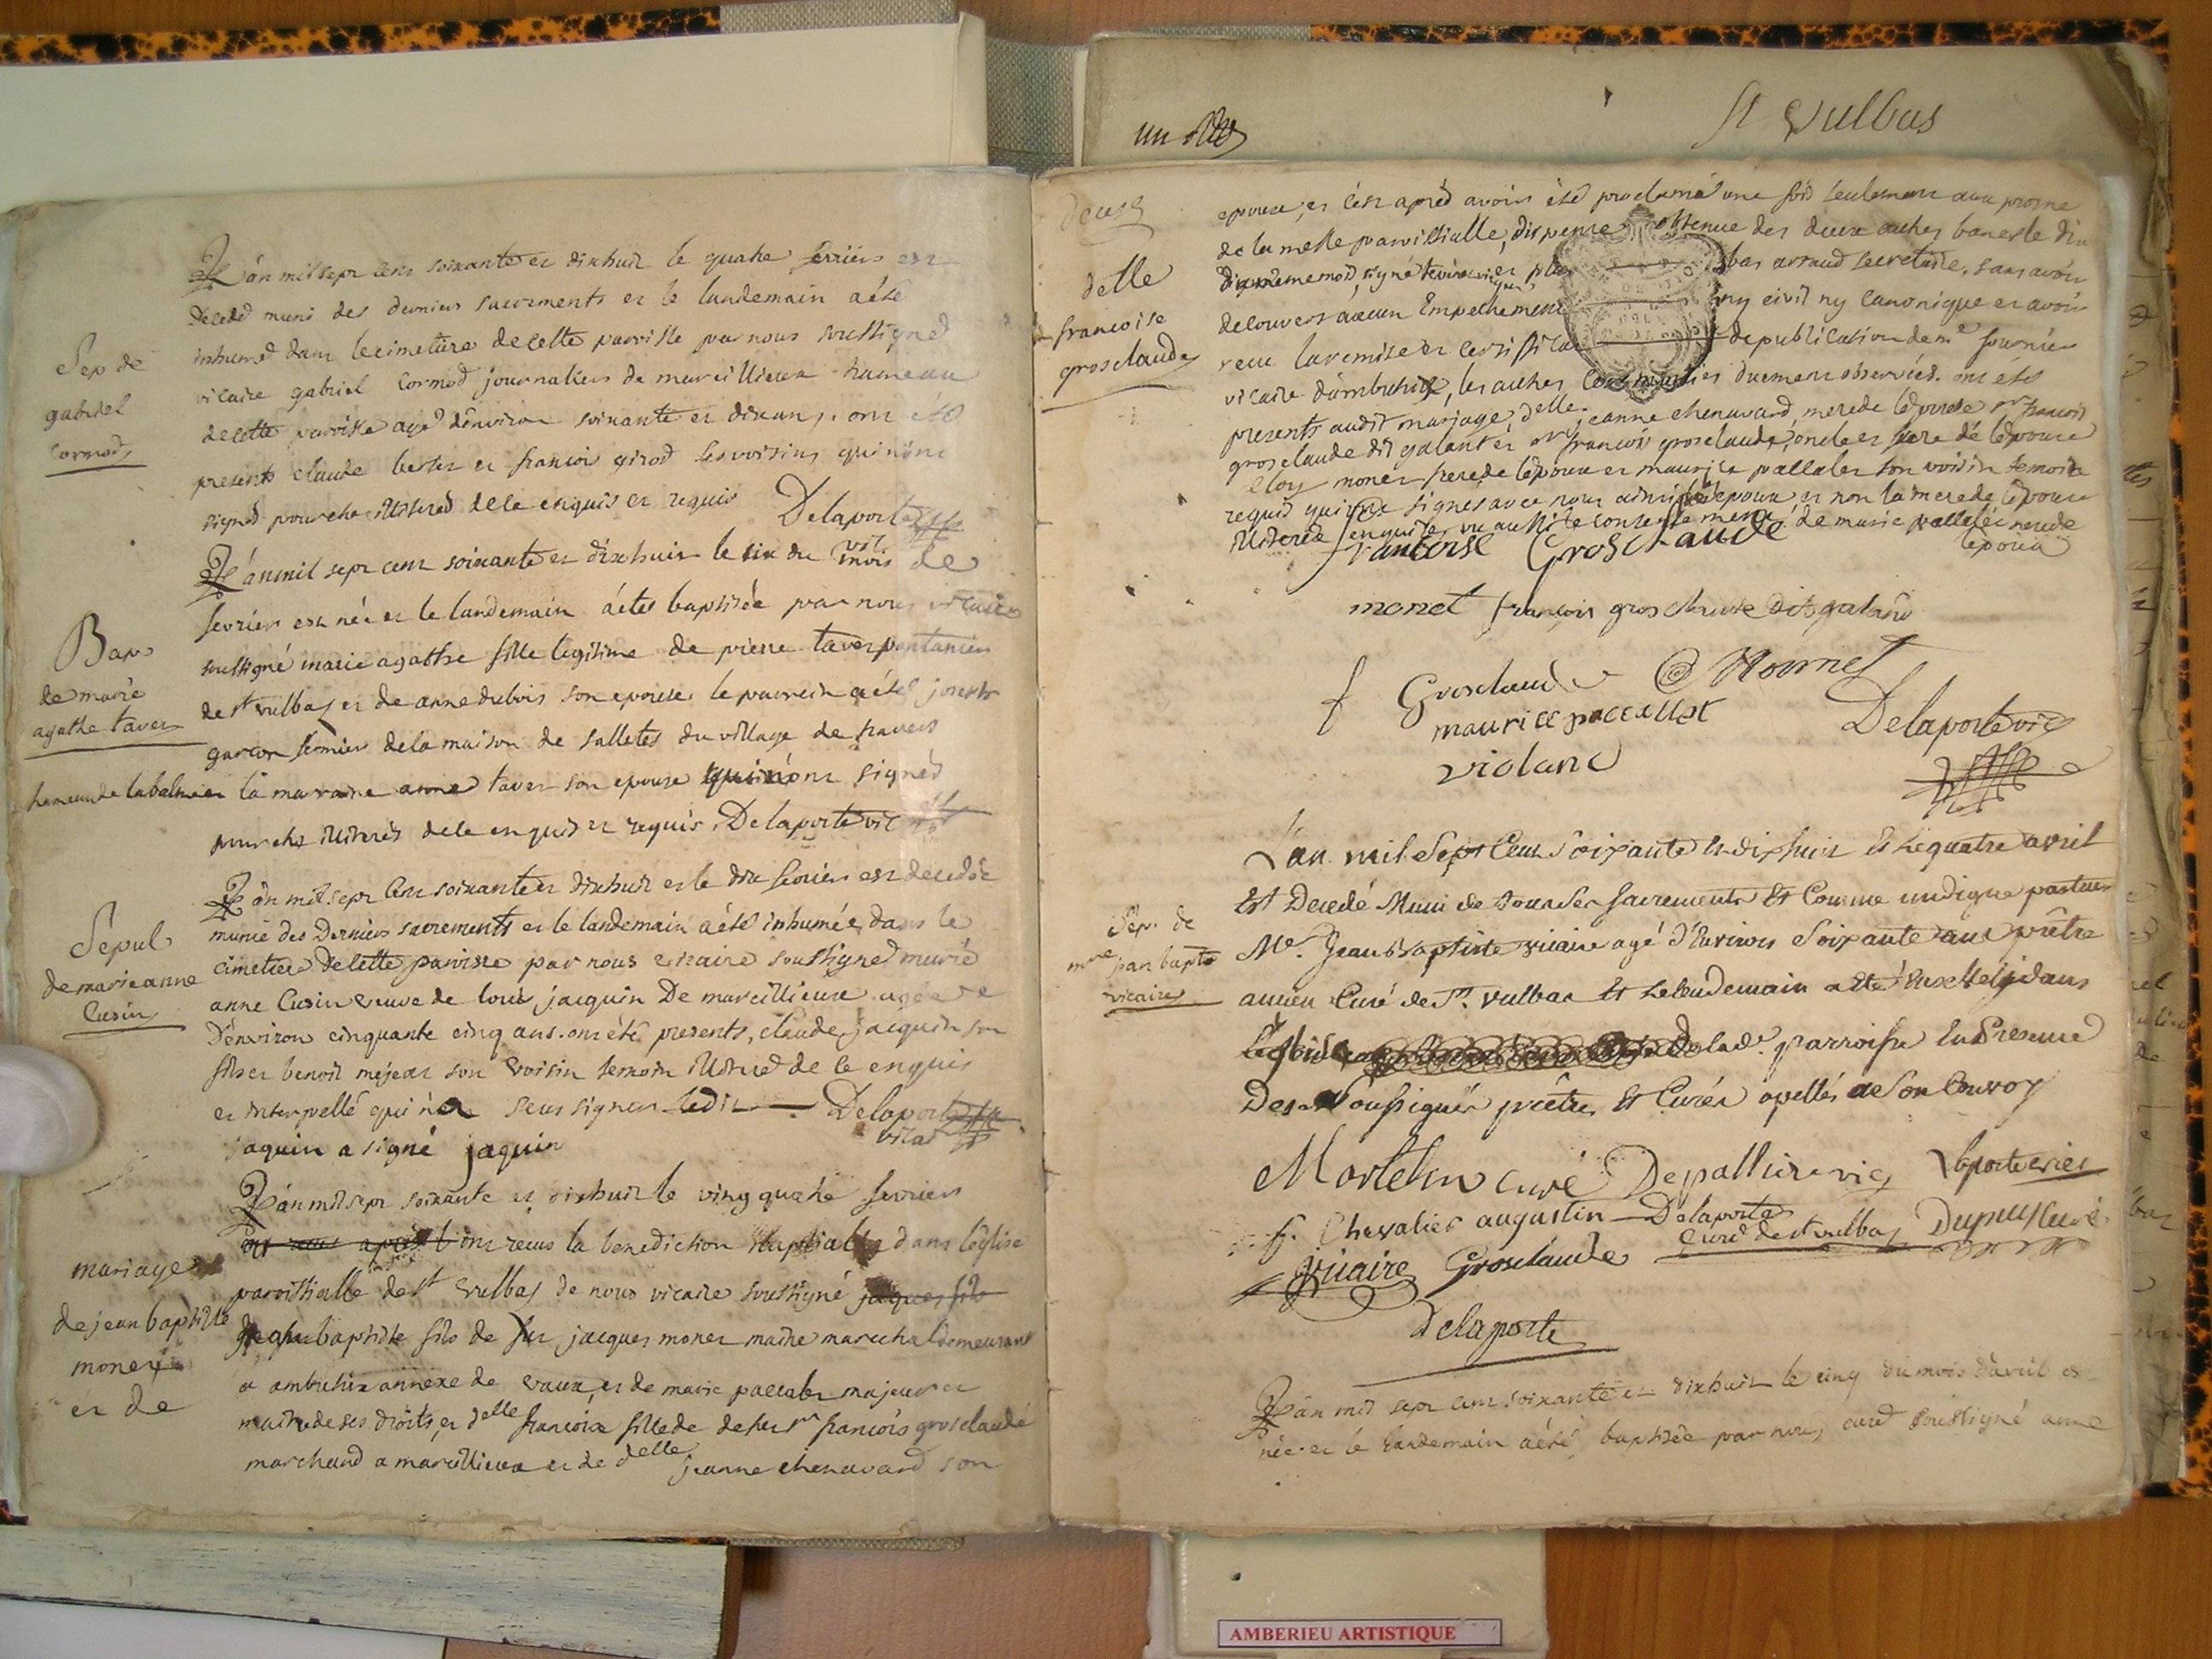 St Vulbas
L'an mil sept cens soixante et dixhuit le quatre fevrier est
decedé muni des derniers sacrements et le landemain a été
inhumé dans le cimetiere de cette parroisse par nous soussigné
Sep de
gabriel
Cormod
vicaire gabriel Cormod journalier de marcillieux hameau
de cette parroisse agé d'environ soixante et dix ans, ont été
presents claude et françois girod ses voisins qui n'ont
signé pour etre illiterés de ce enquis et requis Delaporte
vic
L'an mil sept cens soixante et dixhuit le six du mois de
fevrier est née et le landemain a étée baptisée par nous vicaire
Bap
de marie
agathe taver
soussigné marie agathe fille legitime de pierre taver
de st vulbas et de anne dubois son epouse le parrein a été joseph
garçon fermier de la maison de salletes du village de
hameau de la balme et la marraine anne taver son epouse qui n'ont signés
pour etre illiterés de ce enquis et requis. Delaporte vic
L'an mil sept cens soixante et dixhuit et le dix fevrier est decedée
munie des derniers sacrements et le landemain a été inhumée dans le
Sepul
de marie anne
Cusin
cimetiere de cette parroisse par nous vicaire soussigné marie
anne Cusin veuve de louis jacquin de marcillieux agée
d'environ cinquante cinq ans. ont été presents, claude jacquin son
fils et benoit mejeat son voisin temoin illiteré de ce enquis
et interpellé qui n'a seus signer ledit Delaporte
vicai
jaquin a signé jaquin
L'an mil sept soixante et dixhuit le vingt quatre fevrier
ont reçus la benediction nuptialle dans l'église
mariage
de jean baptiste
monet
et de
parroissialle de st vulbas de nous vicaire soussigné jaques fils
jean baptiste fils de feu jacques monet maitre marechal demeurant
a ambutrix annexe de vaux, et de marie paccalet majeur et
maitre de ses droits, et delle françoise fille de defunt sr françois grosclaude
marchand a marcillieux et de delle jeanne chenavard son
deux
delle
françoise
grosclaude
epouse, et c'est apres avoir été proclamé une fois seulement aux prone
de la messe parroissialle, dispense obtenue des deux autres bancs le dix
arraud secretaire, sans avoir
decouvert aucun Empechement ny civil ny canonique et avoir
reçu la remise et certificat de publication de mr fournier
vicaire d'ambutrix, les autres duement observées. ont été
presents audit mariage, delle jeanne chenavard mere de l'epouse sr françois
grosclaude dit galant et sr françois grosclaude, oncle et frere de l'epouse
eloy monet frere de l'epoux et maurice paccalet son voisin temoin
requis qui ont signés avec nous ainsi que l'epoux et non la mere de l'epouse
illiterée enquise, vu aussi le consentement de marie paccalet mere de
l'epoux
françoise Grosclaude
monet françois grosclaude dit galand
f Grosclaude Monnet
maurice paccallet
violand
Delaporte vic
L'an mil Sept Cens Soixante et dixhuit Et le quatre avril
Est Decedé Muni de tous Ses Sacrements Et Comme un digne pasteur
Sep. de
mre jean bapte
vicaire
Me. Jean Baptiste vicaire agé d'Environ Soixante ans prêtre
ancien Curé de St. Vulbas Et Le lendemain a été Enseveli dans
L'église de lade. parroisse En Presence
Des Soussignés prêtres Et Curés apellés a Son Convoy
Mortelin curé Depallière vic Laporte vicr
f. Chevalier augustin Delaporte
curé de st vulbas Dupuy curé
Vicaire Grosclaude
Delaporte
L'an mil sept cens soixante et dixhuit le cinq du mois d'avril est
née et le landemain a été baptisée par nous, curé soussigné anne
AMBERIEU ARTISTIQUE